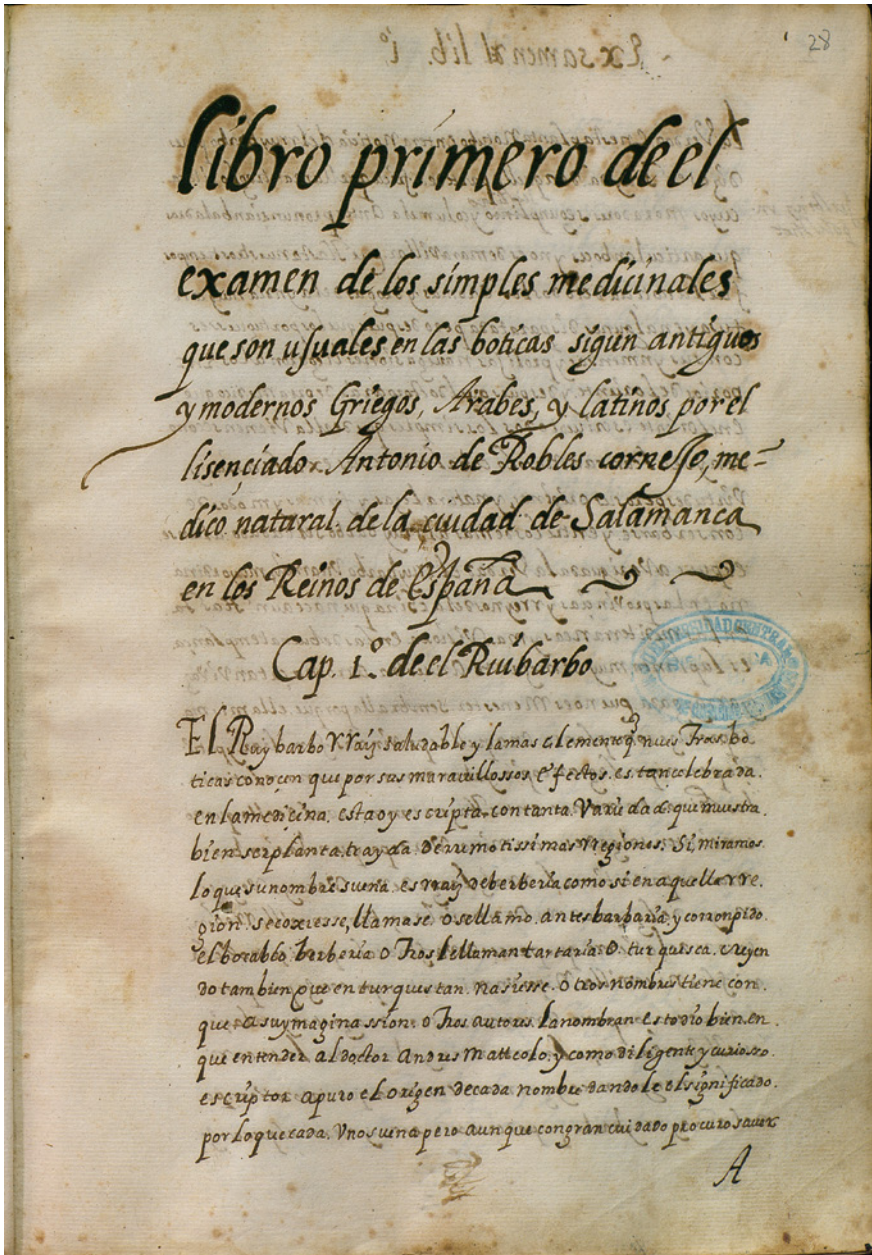 28
libro primero de el
examen de los simples medicinales
que son usuales en las boticas sigun antiguos
y modernos Griegos, Arabes, y latinos por el
lisençiado Antonio de Robles cornejo, me-
dico nataral de la ciudad de Salamanca
en los Reinos de España
Cap. 1º. de el Ruibarbo
El Ray barbo rraiz saludable y la mas clemente q nuestras bo
ticas conoçen que por sus maravillossos efectos es tan celebrada
en la mediçina, esta oy escripta con tanta variedad que muestra
bien ser planta trayda de rremotissimas rregiones. Si miramos
lo que su nombre suena es rraiz de berberia como si en aquella rre
gion se coxiesse, llamase o se llamo antes barbaria y corronpido
el bocablo berberia otros le llaman tartaria o turquesca creyen
do tambien que en turquestan nasiesse. otros nombres tiene con
que a su ymaginassion otros autores la nombran esto dio bien en
que entender al doctor Andres Matteolo y como diligente y curiosso
escriptor apuro el origen de cada nombre dandole el significado
por lo que cada uno suena pero aunque con gran cuidado procuro saver
A